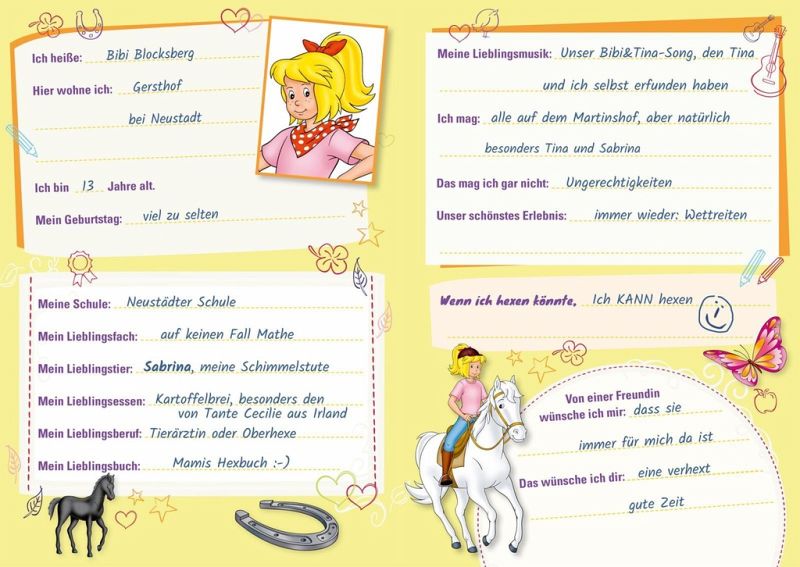 Ich heiße: Bibi Blocksberg
Hier wohne ich: Gersthof
bei Neustadt
Ich bin 13 Jahre alt.
Mein Geburtstag: viel zu selten
Meine Schule: Neustädter Schule
Mein Lieblingsfach: auf keinen Fall Mathe
Mein Lieblingstier: Sabrina, meine Schimmelstute
Mein Lieblingsessen: Kartoffelbrei, besonders den
von Tante Cecilie aus Irland
Mein Lieblingsberuf: Tierärztin oder Oberhexe
Mein Lieblingsbuch: Mamis Hexbuch :-)
Meine Lieblingsmusik: Unser Bibi&Tina-Song, den Tina
und ich selbst erfunden haben
Ich mag: alle auf dem Martinshof, aber natürlich
besonders Tina und Sabrina
Das mag ich gar nicht: Ungerechtigkeiten
Unser schönstes Erlebnis: immer wieder: Wettreiten
Wenn ich hexen könnte, Ich KANN hexen
Von einer Freundin
wünsche ich mir: dass sie
immer für mich da ist
Das wünsche ich dir: eine verhext
gute Zeit